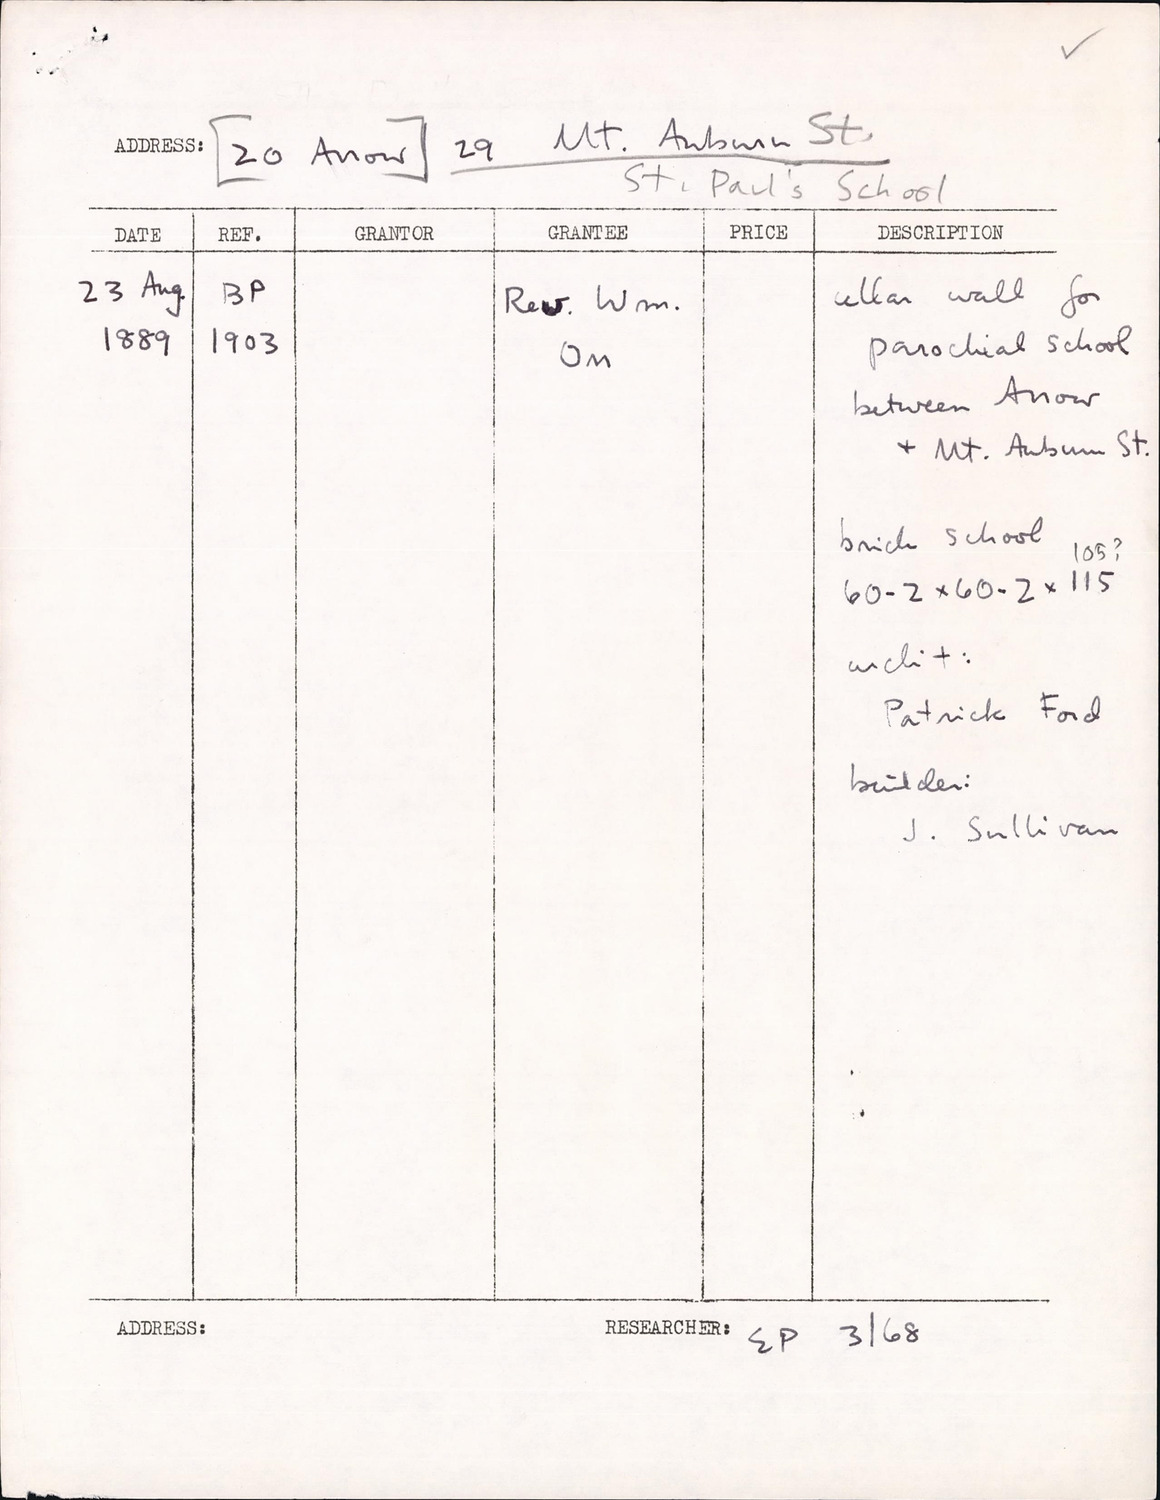 ADDRESS: [20 Arrow] 29 Mt. Auburn St.
St. Paul's School
DATE REF. GRANTOR GRANTEE PRICE DESCRIPTION
23 Aug BP Rev. Wm. cellar wall for
1889 1903 Orr parochial school
between Arrow
+ Mt. Auburn St.
brick school 105?
60-2 x 60-2 x 115
archit:
Patrick Ford
builder:
J. Sullivan
ADDRESS: RESEARCHER: EP 3/68